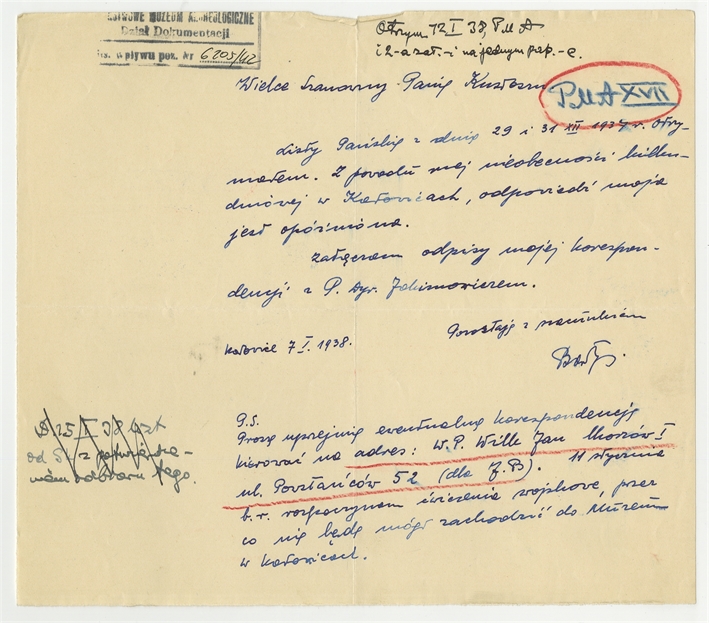 PAŃSTWOWE MUZEUM ARCHEOLOGICZNE
Dział Dokumentacji
Ks. wpływu poz. Nr 6205/42
Otrzym 12 I 38, P.M.A
i 2-a zał.-i na jednym pap.-e.
Wielce Szanowny Panie Kustoszu
P.M.A XVII
Listy Pańskie z dnia 29 i 31 XII 1937 r. otrzy-
małem. Z powodu mej nieobecności kilku-
dniowej w Katowicach, odpowiedź moja
jest opóźniona.
Załączam odpisy mojej korespon-
dencji z P. Dyr. Jakimowiczem.
Pozostaję z szacunkiem
Katowice 7 I. 1938.
Bartys.
P.S.
Proszę uprzejmie eventualną korespondencję
kierować na adres: W.P. Wilk Jan Chorzów I
ul. Powstańców 52 (dla J.B). 11 stycznia
b.r. rozpoczynam ćwiczenia wojskowe, przez
co nie będę mógł zachodzić do Muzeum
w Katowicach.
D 25 I 38
od
odbioru tego.